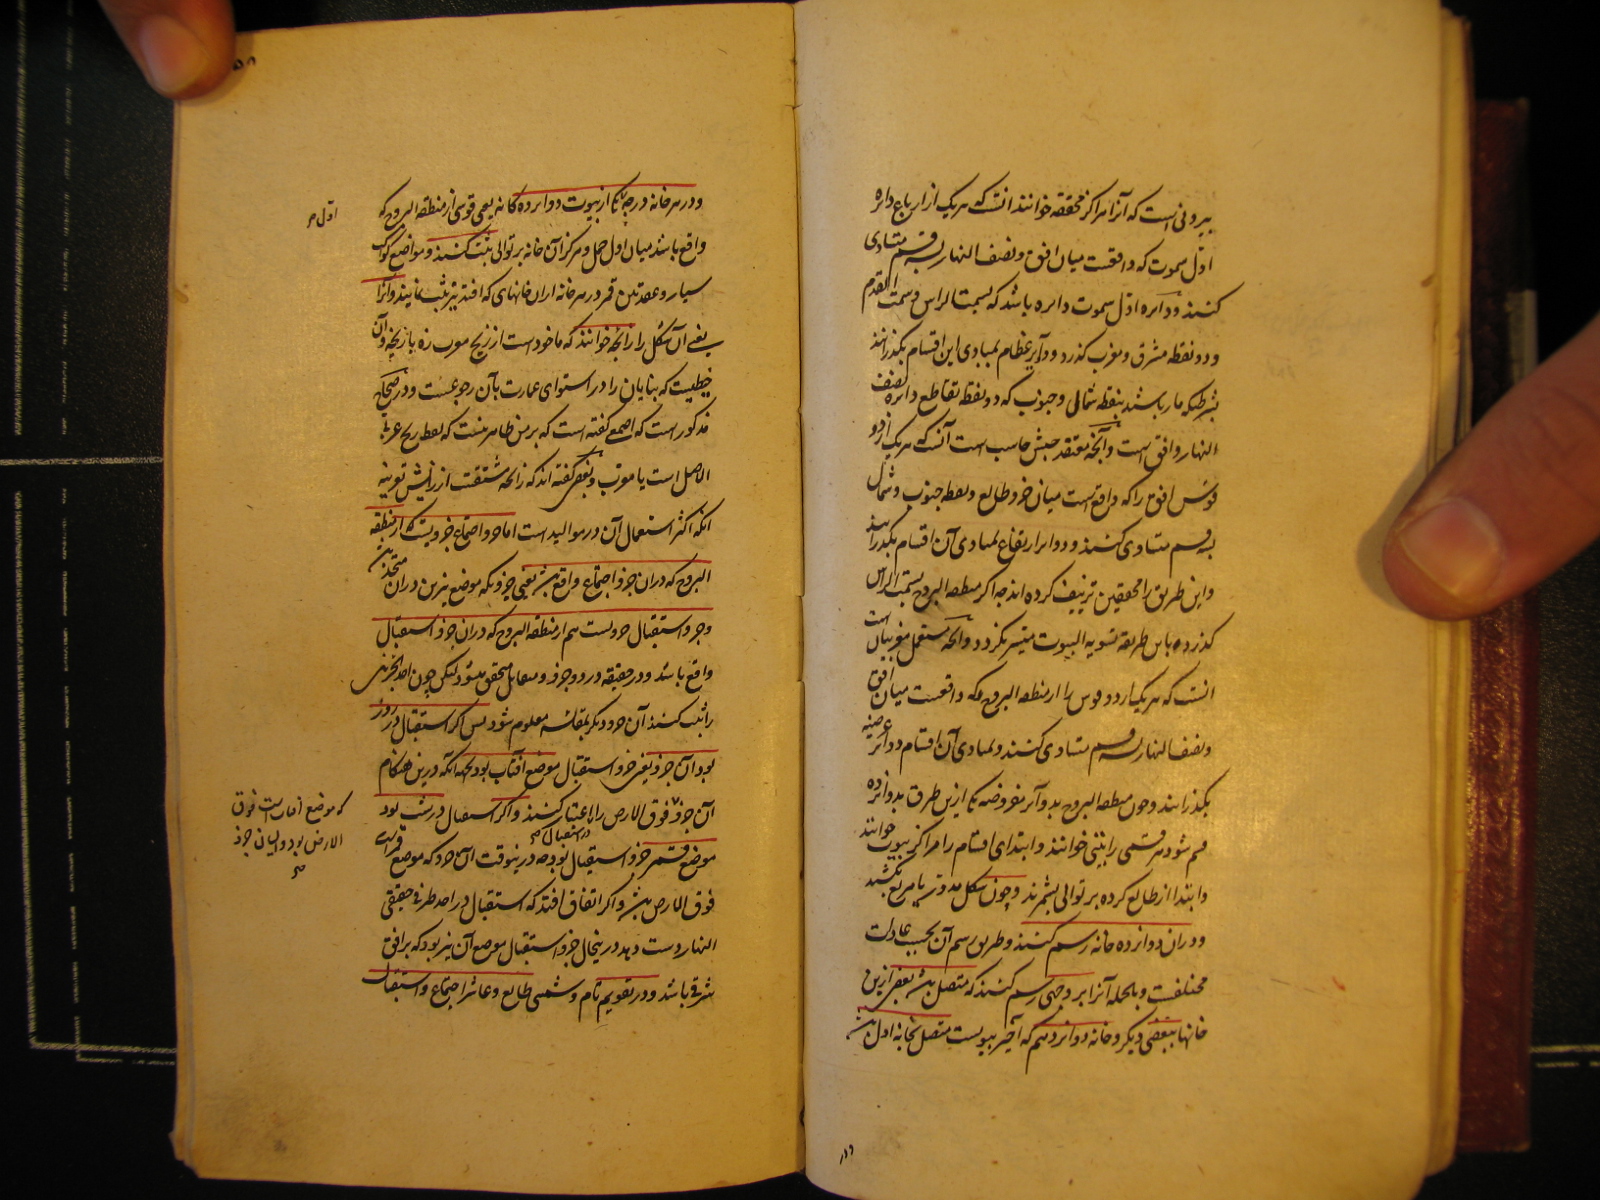 بیرونی است که آنرا مراکز محققه خوانند انست که هر یک از ارباع دائره
اول سموت که واقعست میان افق و نصف النهار بسه قسم متساوی
کنند و دایره اول سموت دائره باشد که بسمت الراس و سمت القدم
و دو نقطه مشرق و مغرب گذرد و دوایر عظام بمبادی این اقسام بگذرانند
بشرطیکه مار باشند بنقطه شمال و جنوب که دو نقطه تقاطع دائره نصف
النهار و افق است و آنچه معتقد حبش حاسب است آنست که هر یک از دو
قوس افق را که واقع است میان جزو طالع و نقطه جنوب و شمال
بسه قسم متساوی کنند و دوایر ارتفاع بمبادی آن اقسام بگذرانند
و این طریق را محققین تزییف کرده اند چه اگر منطقه البروج بسمت الراس
گذرد باین طریقه تسویه البیوت متیسر نگردد و آنچه مستعمل مغربیان است
انست که هر یک از دو قوس را از منطقه البروج که واقعست میان افق
و نصف النهار بسه قسم متساوی کنند و بمبادی آن اقسام دوائر عرضیه
بگذرانند و چون منطقه البروج بدوایر مفروضه بیکی ازین طرق بدوازده
قسم شود هر قسمی را بیتی خوانند و ابتدای اقسام را مراکز بیوت خوانند
و ابتدا از طالع کرده بر توالی بشمرند و چون شکل مدور یا مربع بکشند
و دران دوازده خانه رسم کنند و طریق رسم آن بحسب عادت
مختلفست و بالجمله آنرا بر وجهی رسم کنند که متصل باشد بعضی ازین
خانها ببعضی دیگر و خانه دوازدهم که آخر بیوست متصل بخانه اول باشد
ودر
و در هر خانه درجه یکی از بیوت دوازده گانه یعنی قوسی از منطقه البروج که
اول
واقع باشد میان اول حمل و مرکز آن خانه بر توالی ثبت کنند و مواضع کواکب
سیار و عقدتین قمر در هر خانه ازان خانهای که افتد نیز ثبت نمایند و آنرا
یعنی آن شکل را زایجه خوانند که ماخوذ است از زیج معرب زه یا زیجه و آن
خیطیست که بنایان را در استوای عمارت بآن رجوعست و در صحاح
مذکور است که اصمعی گفته است که بر من ظاهر نیست که لفظ زیج عربی
الاصل است یا معرب و بعضی گفته اند که زایجه مشتقست از زایش بقرینه
انکه اکثر استعمال آن در موالید است اما جزو اجتماع جزویست که از منطقه
البروج که دران جزو اجتماع واقع باشد یعنی جزویکه موضع نیرین دران متحد باشد
و جزو استقبال جزویست هم از منطقه البروج که دران جزو استقبال
واقع باشد و در حقیقه در دو جزو متقابل متحقق میشود لیکن چون احد الجزئین
را ثبت کنند آن جزو دیگر بمقایسه معلوم شود پس اگر استقبال در روز
بود آن جزو یعنی جزو استقبال موضع آفتاب بود بجهه انکه درین هنگام
آن جزو فوق الارض را اعتبار کنند و اگر استقبال در شب بود
که موضع آفتاب است فوق
الارض بود و ایشان جزو
در استقبال
موضع قمر جزو استقبال بود چه درینوقت آن جزو که موضع قمر است
فوق الارض باشد و اگر اتفاق افتد که استقبال در احد طرفی حقیقی
النهار دست دهد درینحال جزو استقبال موضع آن نیر بود که بر افق
شرقی باشد و در تقویم تام و شمسی طالع و عاشر اجتماع و استقبال